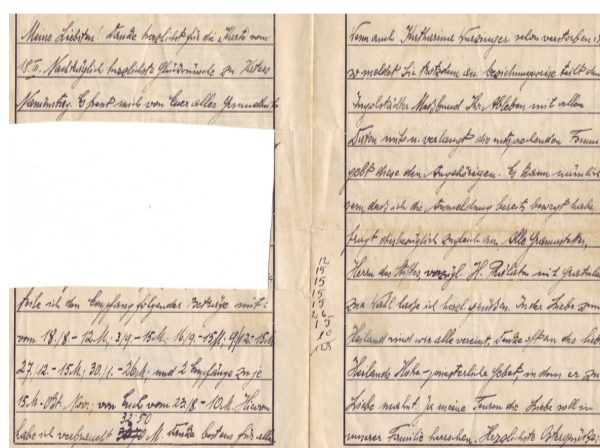 Meine Liebsten! Danke herzlichst für die Karte vom
18. II. Nachträglich herzlichste Glückwünsche zu Vaters
Namenstag. Es freut mich von Euer alles
teile ich den Empfang folgender Beträge mit:
vom 18./8. - 12 M; 3./9. - 15 M. 16./9. - 15 M. 9./12. - 15 M
27./12. - 15 M; 30./1. - 26 M. und 2 Empfänge zu je
15 M. Okt. Nov.; von Euch vom 23./8 - 10 M. Hievon
32,50
habe ich verbraucht M. Danke bestens für alle
12
15
15
15
15
10
Wenn auch Katharina schon verstorben
so meldet Sie trotzdem an beziehungsweise teilt dem
Ingolstädter Meßbund Ihr Ableben mit allen
mit u. verlangt die entsprechenden
gebt diese den Angehörigen. Es kann nämlich
sein dass ich die Anmeldung bereits besorgt habe
fragt diesbezüglich zugleich an. Alle
Herrn des Stiftes vorzügl. H. mit
zur Wahl lasse ich herzl. grüßen. In der Liebe zum
Heiland sind wir alle vereint. Denkt oft an des lieb
Heilands Hohepriesterliche Gebet, in dem er zur
Liebe mahnt. Ja meine Teuren die Liebe soll in
unserer Familie herrschen. Herzlichste